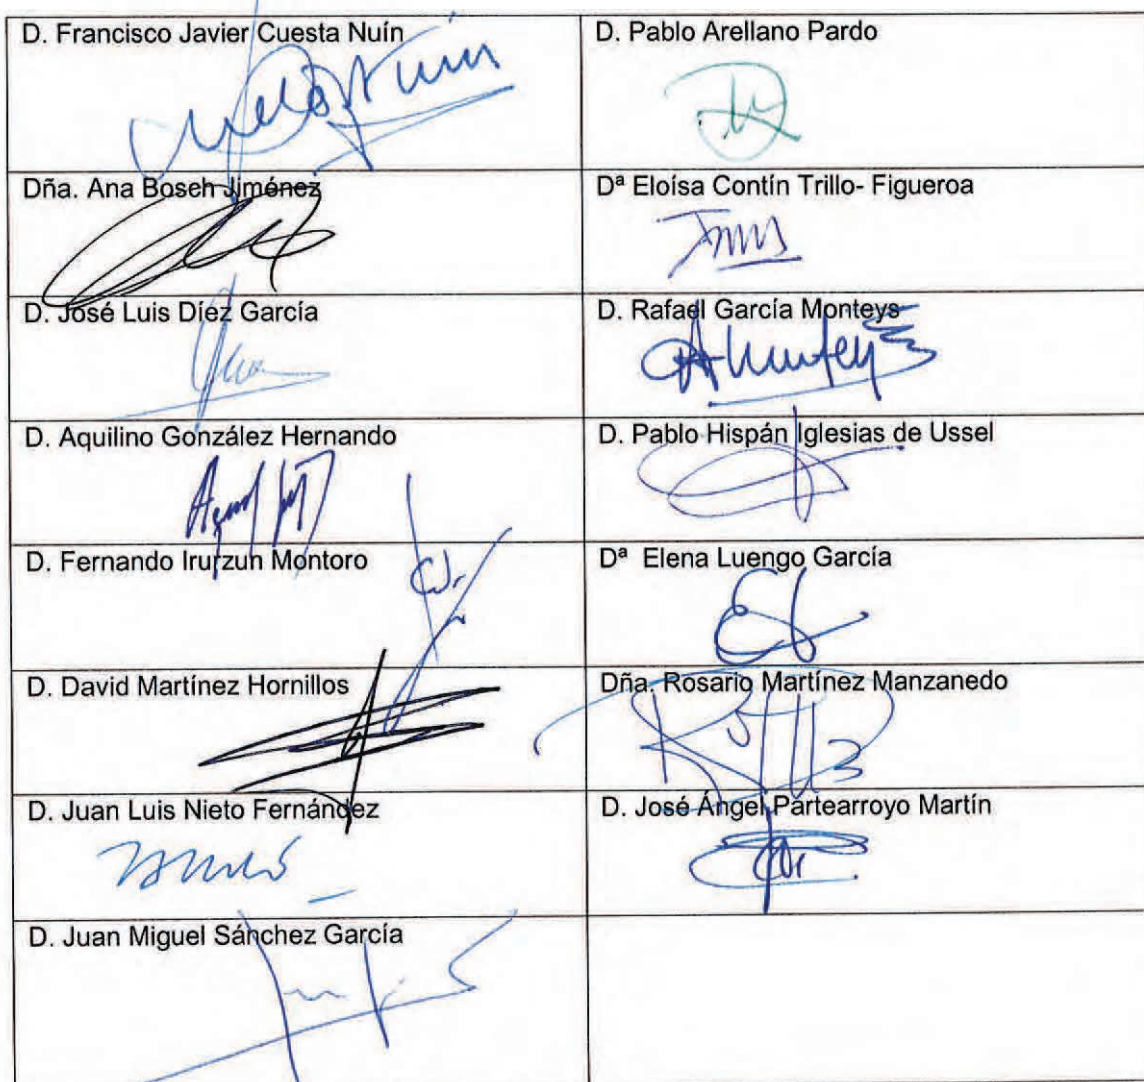 D. Francisco Javier Cuesta Nuín
D. Pablo Arellano Pardo
Dña. Ana Bosch Jiménez
Dª Eloísa Contín Trillo- Figueroa
D. José Luis Díez García
D. Rafael García Monteys
D. Aquilino González Hernando
D. Pablo Hispán Iglesias de Ussel
D. Fernando Irurzun Montoro
Dª Elena Luengo García
D. David Martínez Hornillos
Dña. Rosario Martínez Manzanedo
D. Juan Luis Nieto Fernández
D. José Ángel Partearroyo Martín
D. Juan Miguel Sánchez García